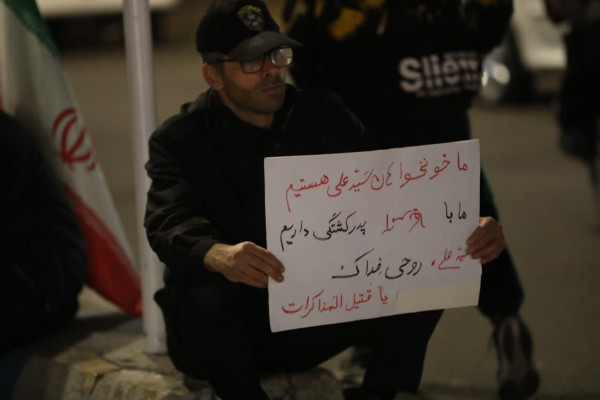 ما خونخواهان سَیّد علی هستیم
ما با پدرکشتگی داریم
سیّد علے، روحی فداک
یا قتیل المذاکرات